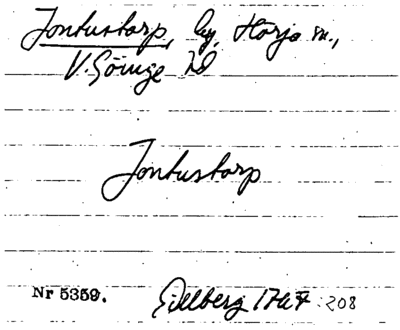 Jontustorp, by, Hörja sn.,
V. Göinge hd
Jontustorp
Nr 5359. Gillberg 1767 :208